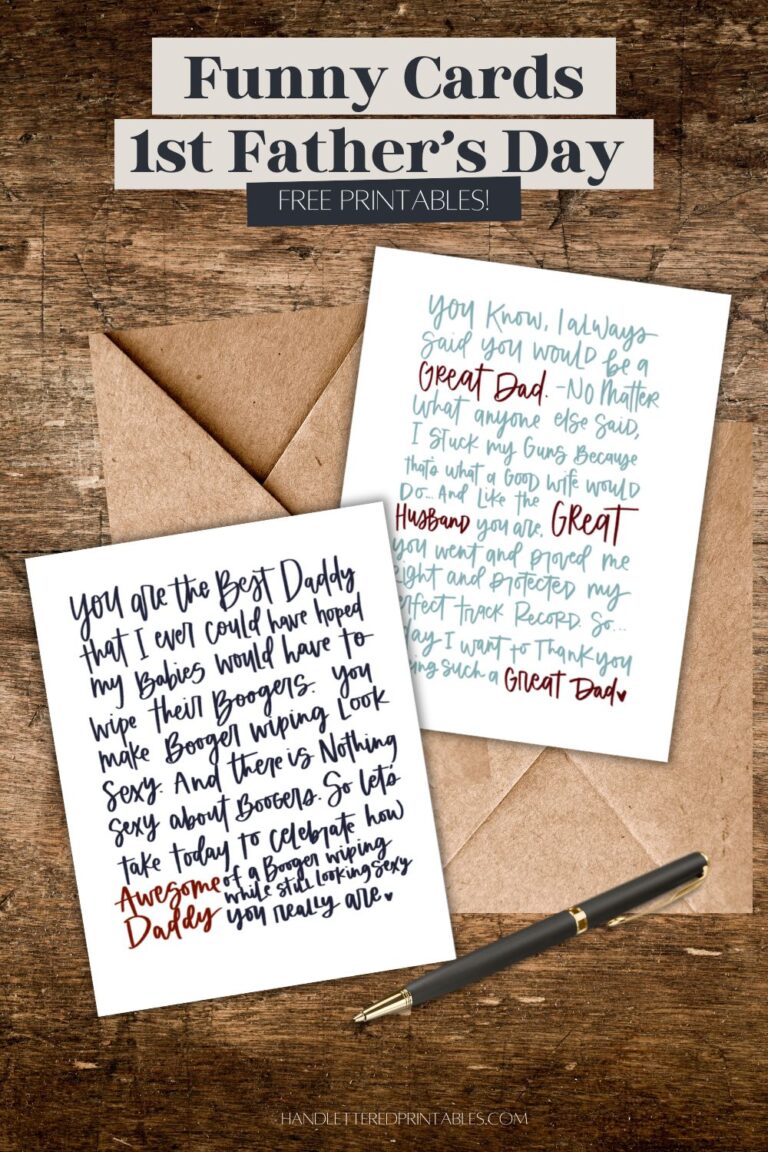 Funny Cards
1st Father's Day
FREE PRINTABLES!
You Know, I always
said you would be a
Great Dad. -No Matter
what anyone else said,
I stuck my Guns Because
that's what a Good wife would
Do... And Like the
Husband you are, Great
you went and proved me
Right and protected my
rfect track Record. So...
day I want to Thank you
ing such a Great Dad
You are the Best Daddy
that I ever could have hoped
my Babies would have to
wipe their Boogers. You
make Booger wiping Look
Sexy. And there is Nothing
sexy about Boogers. So let's
take today to celebrate how
Awesome of a Booger wiping
while still looking sexy
Daddy you really are
HANDLETTEREDPRINTABLES.COM